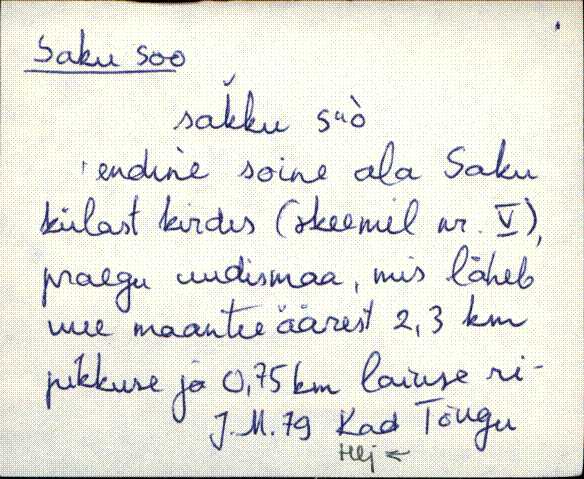 Saku soo
sakku suò
endine soine ala Saku
külast kirdes (skeemil nr. V),
praegu uudismaa, mis läheb
uue maantee äärest 2,3 km
pikkuse ja 0,75 km laiuse ri-
J.M. 79 Kad Tõugu
Hlj ←